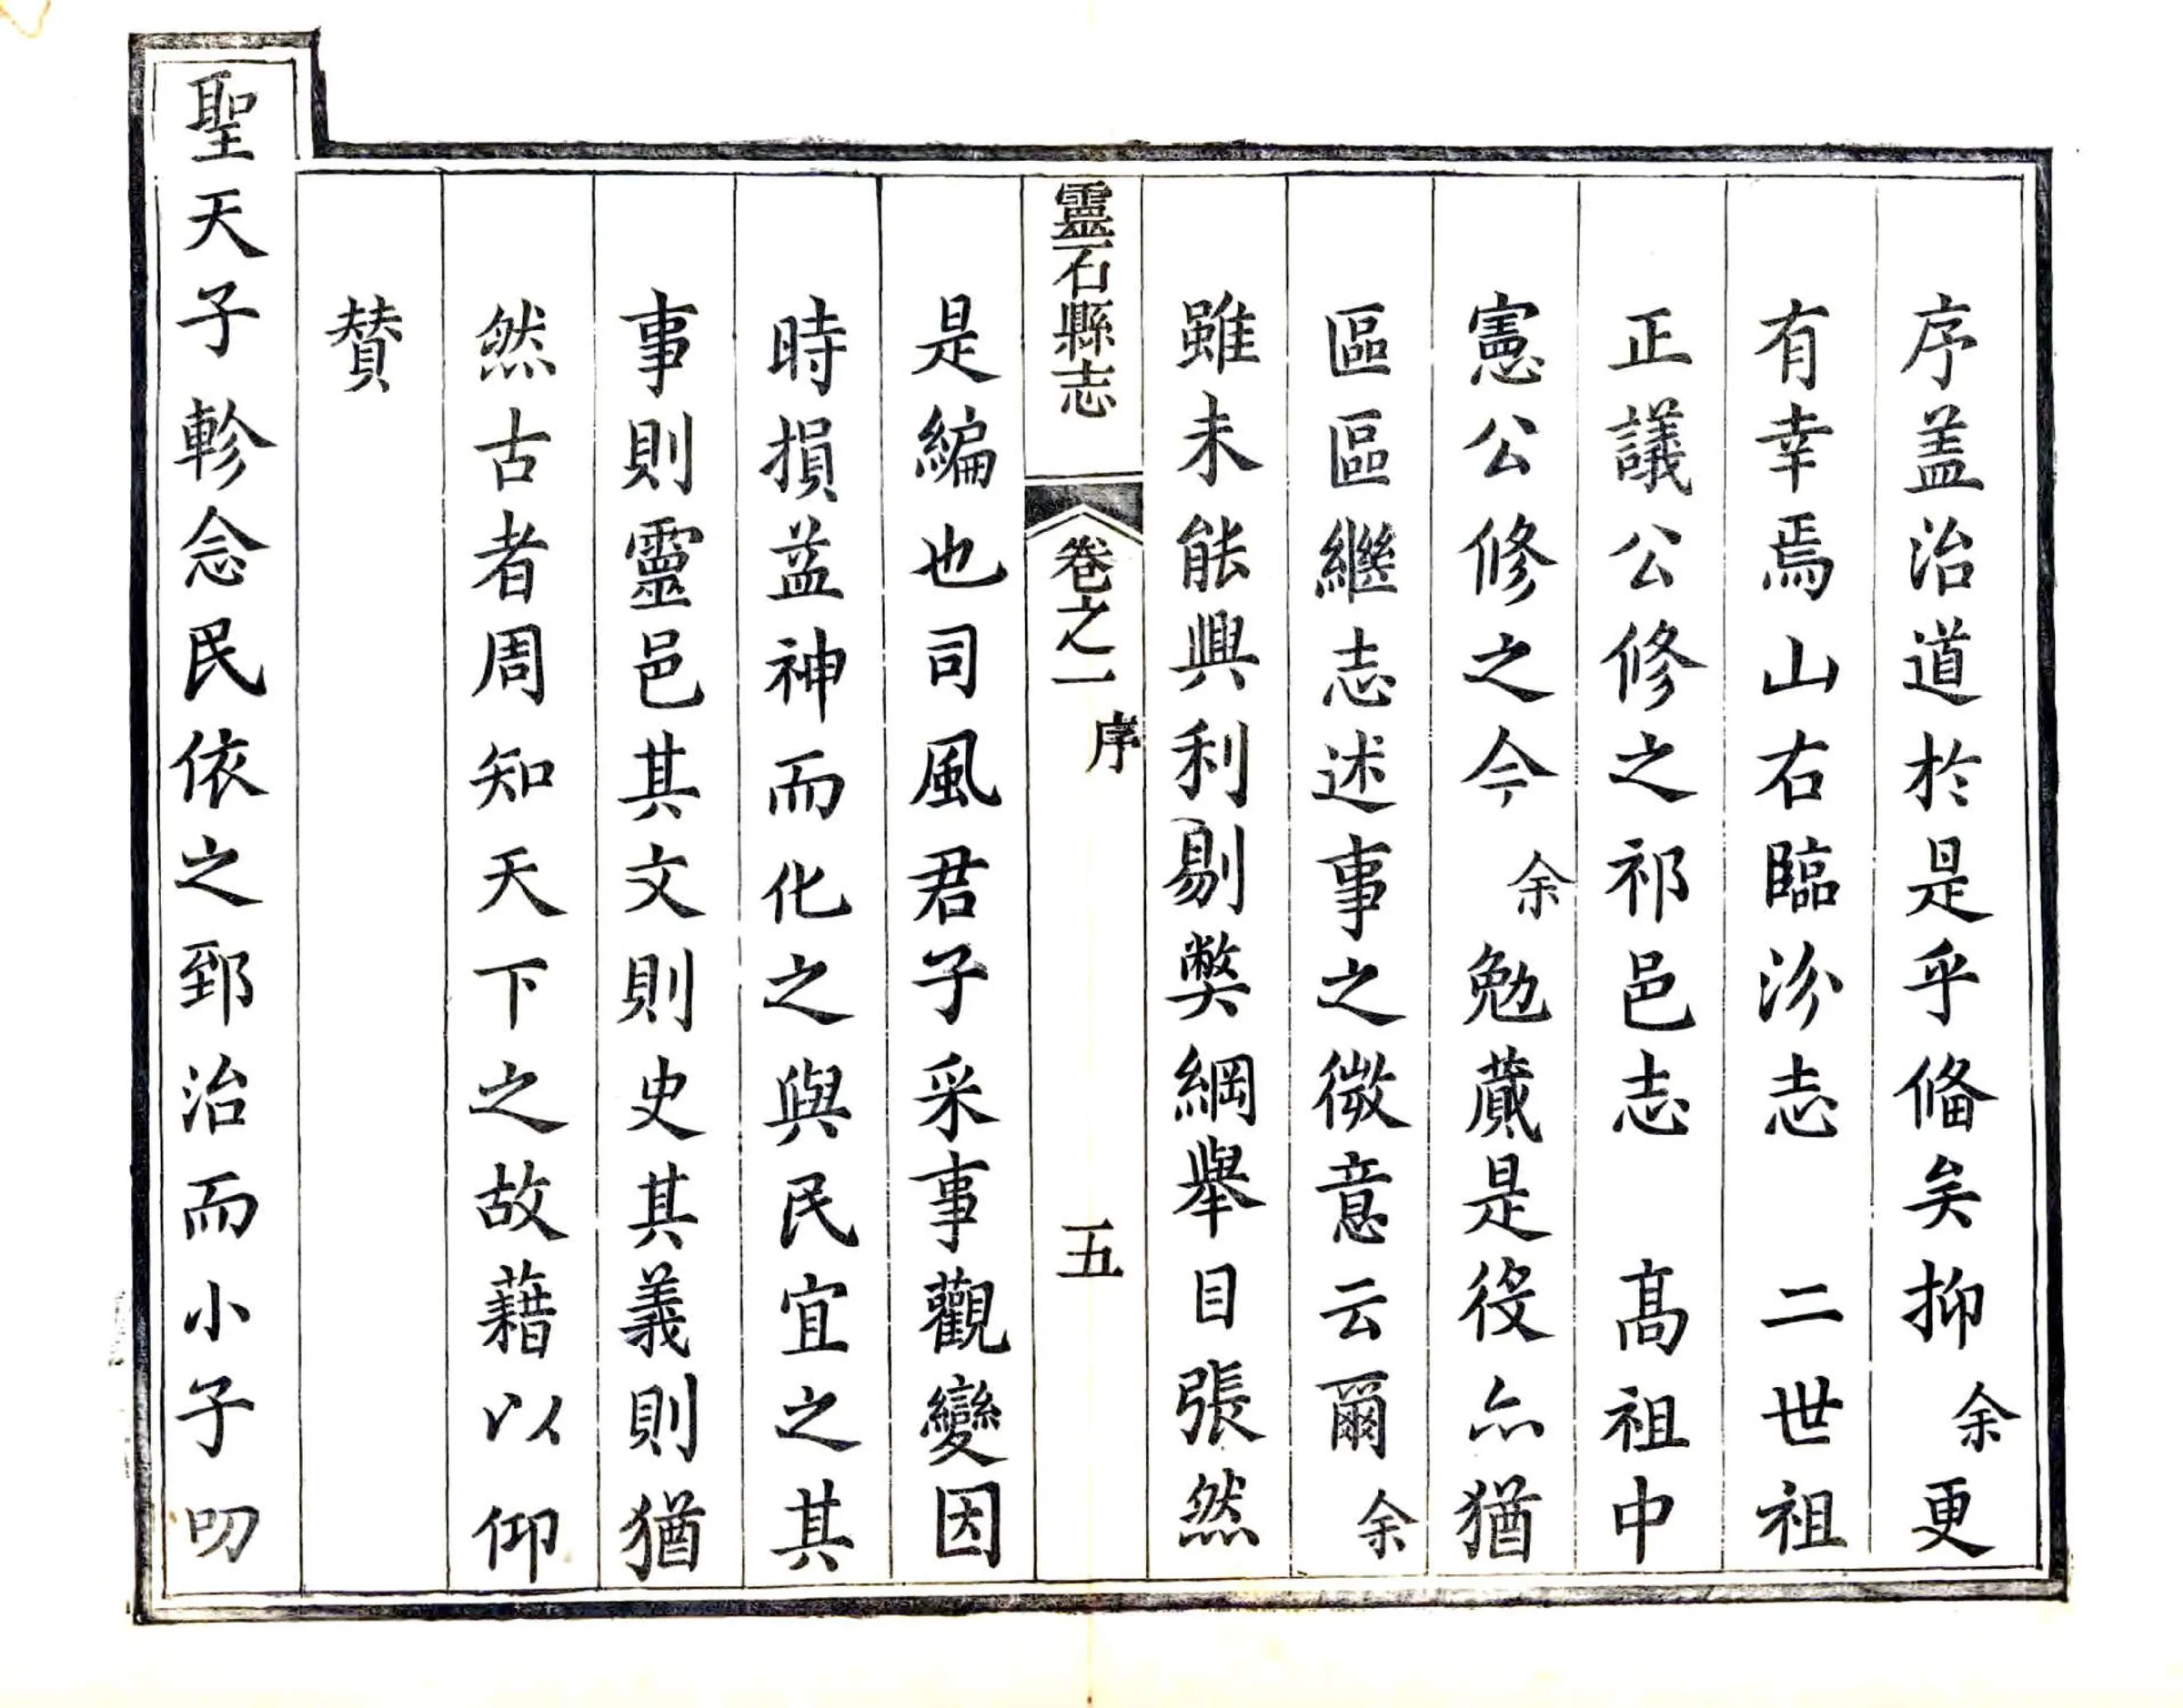 序盖治道於是乎俻矣抑余更
有幸焉山右臨汾志二世祖
正議公修之祁邑志髙祖中
憲公修之今余勉蕆是役亦猶
區區繼志述事之微意云爾余
雖未能興利剔弊綱舉目張然
靈石縣志 卷之一 序 五
是編也司風君子采事觀變因
時損益神而化之與民宜之其
事則靈邑其文則史其義則猶
然古者周知天下之故藉以仰
賛
聖天子軫念民依之郅治而小子叨